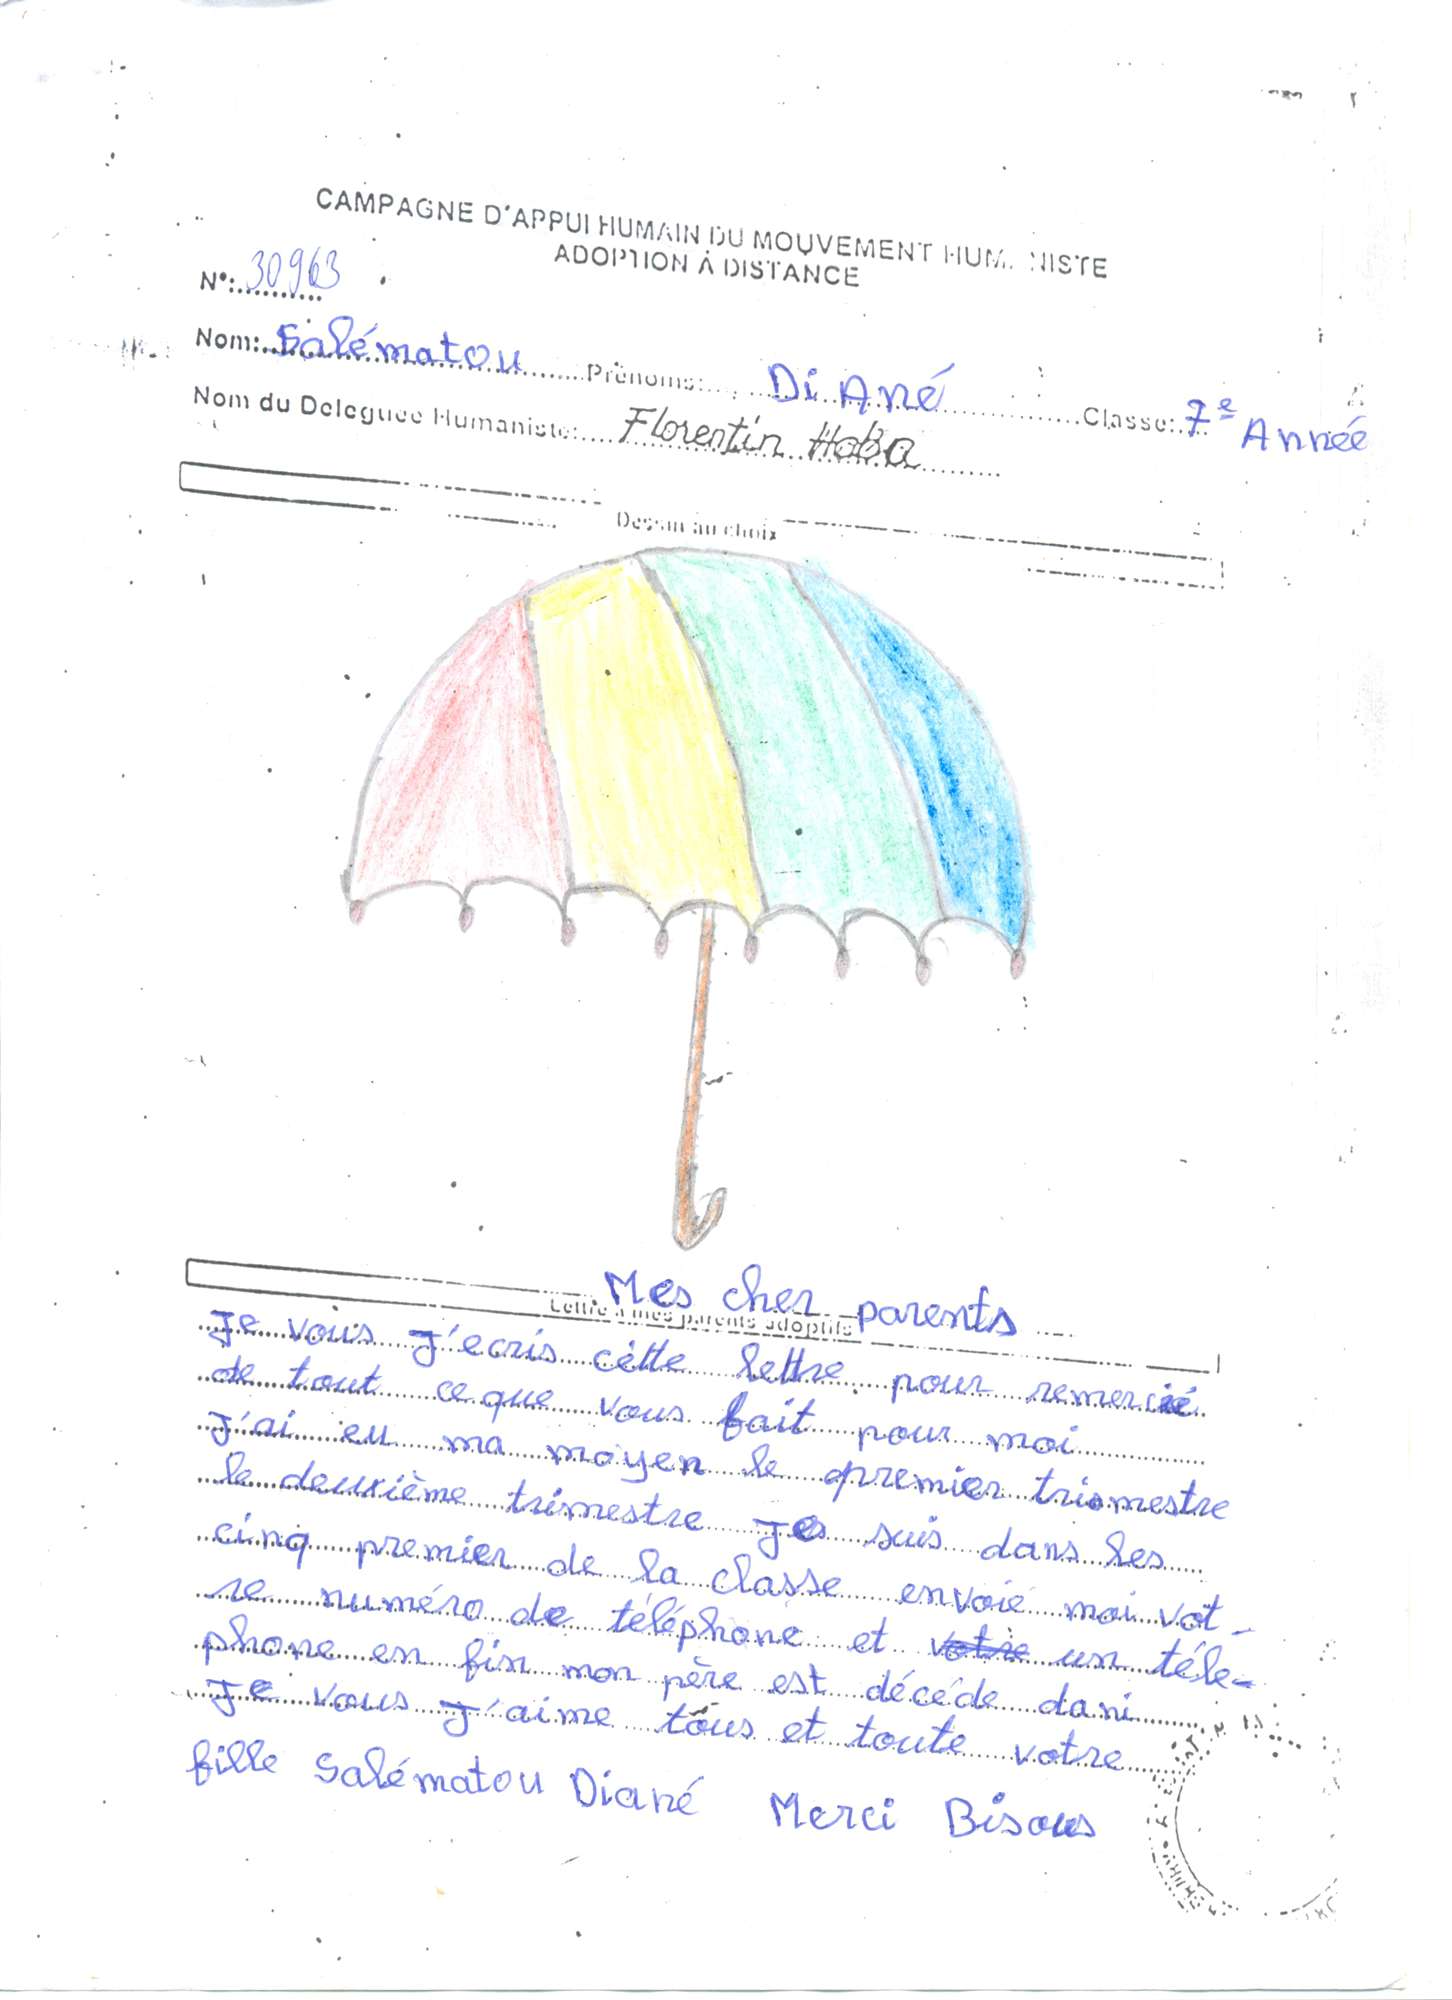 CAMPAGNE D'APPUI HUMAIN DU MOUVEMENT HUMANISTE
ADOPTION À DISTANCE
N°: 30963
Nom: Salématou Prénoms: Di Ané Classe: 7e Année
Nom du Deleguée Humaniste: Florentin Haba
Dessin au choix
Mes cher parents
Lettre à mes parents adoptifs
Je vous J'ecris cètte lettre pour remercié
de tout ce que vous fait pour moi
J'ai eu ma moyen le premier trimestre
le deuxième trimestre Je suis dans les
cinq premier de la classe envoie moi vot-
re numéro de téléphone et votre un télé-
phone en fin mon père est décéde dani
Je vous J'aime tous et toute votre
fille Salématou Diané Merci Bisous